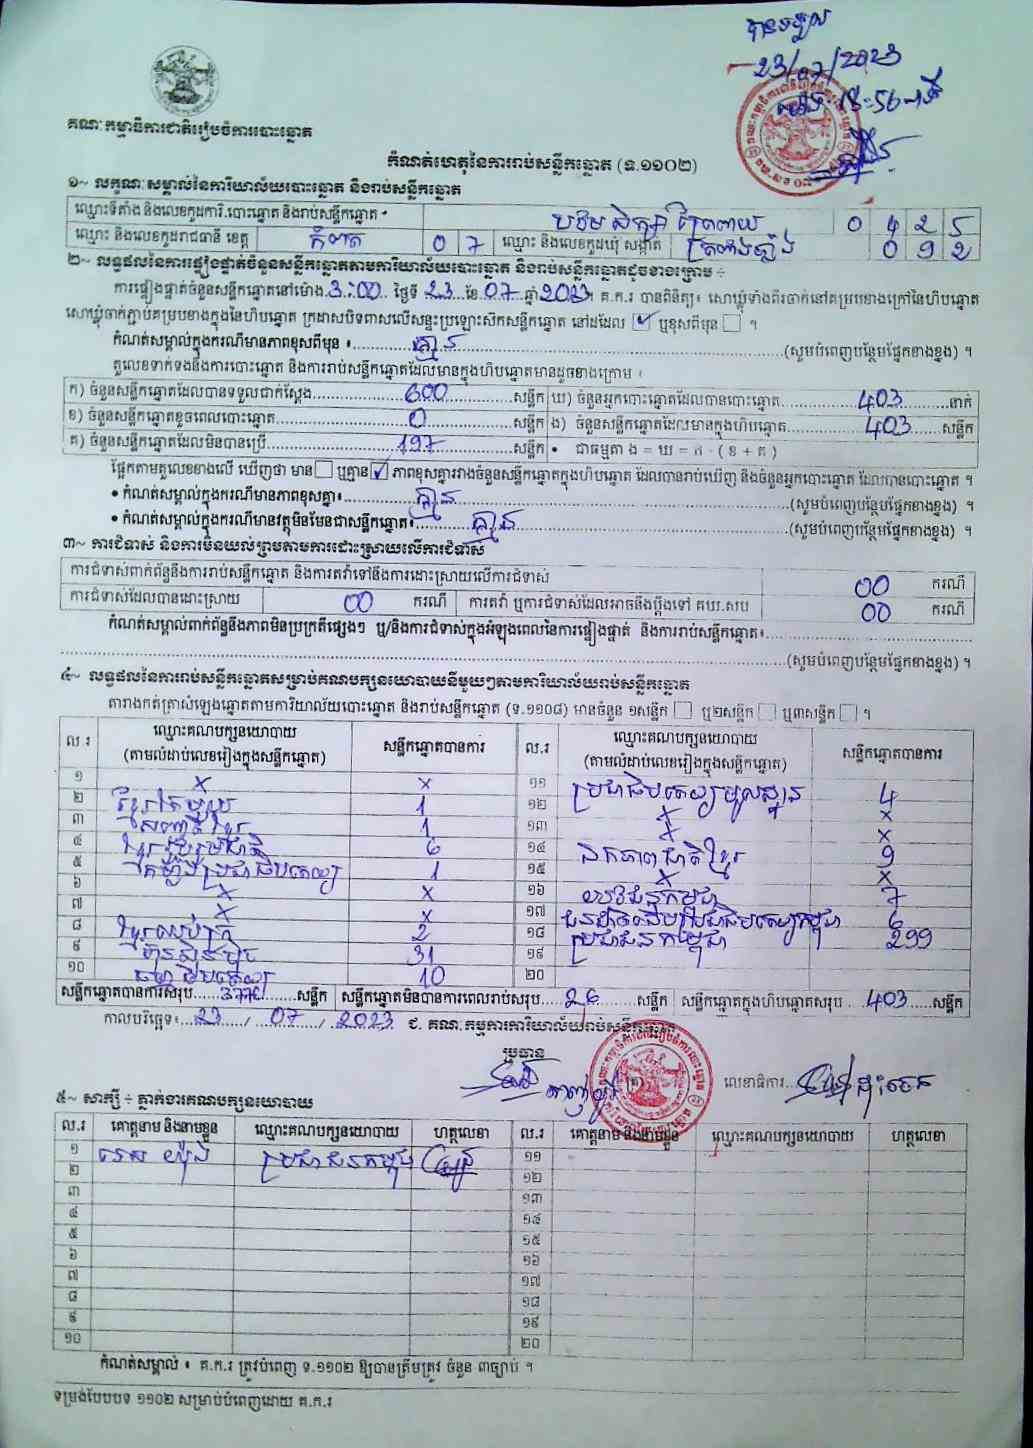 បានទទួល
23/07/2023
គណៈកម្មាធិការជាតិរៀបចំការបោះឆ្នោត
កំណត់ហេតុនៃការរាប់សន្លឹកឆ្នោត (ទ.១១០២)
១~ លក្ខណៈសម្គាល់នៃការិយាល័យបោះឆ្នោត និងរាប់សន្លឹកឆ្នោត
ឈ្មោះទីតាំង និងលេខកូដការិ.បោះឆ្នោត និងរាប់សន្លឹកឆ្នោត បឋមសិក្សា ព្រៃពាយ 0 4 2 5
ឈ្មោះ និងលេខកូដរាជធានី ខេត្ត កំពត 0 7 ឈ្មោះ និងលេខកូដឃុំ សង្កាត់ 0 9 2
២~ លទ្ធផលនៃការផ្ទៀងផ្ទាត់ចំនួនសន្លឹកឆ្នោតតាមការិយាល័យបោះឆ្នោត និងរាប់សន្លឹកឆ្នោតដូចខាងក្រោម ÷
ការផ្ទៀងផ្ទាត់ចំនួនសន្លឹកឆ្នោតនៅម៉ោង 3:00 ថ្ងៃទី 23 ខែ 07 ឆ្នាំ 2023 ។ គ.ក.រ បានពិនិត្យ៖ សោឃ្លុំទាំងពីរចាក់នៅគម្របខាងក្រៅនៃហិបឆ្នោត
សោឃ្លុំចាក់ភ្ជាប់គម្របខាងក្នុងនៃហិបឆ្នោត ក្រដាសបិទពាសលើសន្ទះប្រឡោះសិកសន្លឹកឆ្នោត នៅដដែល ✓ ឬខុសពីមុន ។
កំណត់សម្គាល់ក្នុងករណីមានភាពខុសពីមុន ៖ គ្មាន (សូមបំពេញបន្ថែមផ្នែកខាងខ្នង) ។
តួលេខទាក់ទងនឹងការបោះឆ្នោត និងការរាប់សន្លឹកឆ្នោតដែលមានក្នុងហិបឆ្នោតមានដូចខាងក្រោម ៖
ក) ចំនួនសន្លឹកឆ្នោតដែលបានទទួលជាក់ស្តែង 600 សន្លឹក ឃ) ចំនួនអ្នកបោះឆ្នោតដែលបានបោះឆ្នោត 403 នាក់
ខ) ចំនួនសន្លឹកឆ្នោតខូចពេលបោះឆ្នោត 0 សន្លឹក ង) ចំនួនសន្លឹកឆ្នោតដែលមានក្នុងហិបឆ្នោត 403 សន្លឹក
គ) ចំនួនសន្លឹកឆ្នោតដែលមិនបានប្រើ 197 សន្លឹក • ជាធម្មតា ង = ឃ = ក - ( ខ + គ )
ផ្អែកតាមតួលេខខាងលើ ឃើញថា មាន ឬគ្មាន ✓ ភាពខុសគ្នារវាងចំនួនសន្លឹកឆ្នោតក្នុងហិបឆ្នោត ដែលបានរាប់ឃើញ និងចំនួនអ្នកបោះឆ្នោត ដែលបានបោះឆ្នោត ។
• កំណត់សម្គាល់ក្នុងករណីមានភាពខុសគ្នា៖ គ្មាន (សូមបំពេញបន្ថែមផ្នែកខាងខ្នង) ។
• កំណត់សម្គាល់ក្នុងករណីមានវត្ថុមិនមែនជាសន្លឹកឆ្នោត៖ គ្មាន (សូមបំពេញបន្ថែមផ្នែកខាងខ្នង) ។
៣~ ការជំទាស់ និងការមិនយល់ព្រមតាមការដោះស្រាយលើការជំទាស់
ការជំទាស់ពាក់ព័ន្ធនឹងការរាប់សន្លឹកឆ្នោត និងការតវ៉ាទៅនឹងការដោះស្រាយលើការជំទាស់ 00 ករណី
ការជំទាស់ដែលបានដោះស្រាយ 00 ករណី ការតវ៉ា ឬការជំទាស់ដែលអាចនឹងប្តឹងទៅ គឃ.សប 00 ករណី
កំណត់សម្គាល់ពាក់ព័ន្ធនឹងភាពមិនប្រក្រតីផ្សេងៗ ឬ/និងការជំទាស់ក្នុងអំឡុងពេលនៃការផ្ទៀងផ្ទាត់ និងការរាប់សន្លឹកឆ្នោត៖
(សូមបំពេញបន្ថែមផ្នែកខាងខ្នង) ។
៤~ លទ្ធផលនៃការរាប់សន្លឹកឆ្នោតសម្រាប់គណបក្សនយោបាយនីមួយៗតាមការិយាល័យរាប់សន្លឹកឆ្នោត
តារាងកត់ត្រាសំឡេងឆ្នោតតាមការិយាល័យបោះឆ្នោត និងរាប់សន្លឹកឆ្នោត (ទ.១១០៨) មានចំនួន ១សន្លឹក ឬ២សន្លឹក ឬ៣សន្លឹក ។
ល.រ ឈ្មោះគណបក្សនយោបាយ (តាមលំដាប់លេខរៀងក្នុងសន្លឹកឆ្នោត) សន្លឹកឆ្នោតបានការ ល.រ ឈ្មោះគណបក្សនយោបាយ (តាមលំដាប់លេខរៀងក្នុងសន្លឹកឆ្នោត) សន្លឹកឆ្នោតបានការ
១ x x ១១ ប្រជាធិបតេយ្យមូលដ្ឋាន 4
២ ខ្មែរតែមួយ 1 ១២ x x
៣ សញ្ជាតិខ្មែរ 1 ១៣ x x
៤ ខ្មែររួបរួមជាតិ 6 ១៤ ឯកភាពជាតិខ្មែរ 9
៥ កម្លាំងប្រជាធិបតេយ្យ 1 ១៥ x x
៦ x x ១៦ យុវជនកម្ពុជា 7
៧ x x ១៧ ជនជាតិដើមប្រជាធិបតេយ្យកម្ពុជា 6
៨ ខ្មែរឈប់ក្រ 2 ១៨ ប្រជាជនកម្ពុជា 299
៩ ហ៊្វុនស៊ិនប៉ិច 31 ១៩
១០ 10 ២០
សន្លឹកឆ្នោតបានការសរុប 377 សន្លឹក សន្លឹកឆ្នោតមិនបានការពេលរាប់សរុប 26 សន្លឹក សន្លឹកឆ្នោតក្នុងហិបឆ្នោតសរុប 403 សន្លឹក
កាលបរិច្ឆេទ៖ 23 / 07 / 2023 ជ. គណៈកម្មការការិយាល័យរាប់សន្លឹកឆ្នោត
ប្រធាន
លេខាធិការ
៥~ សាក្សី ÷ ភ្នាក់ងារគណបក្សនយោបាយ
ល.រ គោត្តនាម និងនាមខ្លួន ឈ្មោះគណបក្សនយោបាយ ហត្ថលេខា ល.រ គោត្តនាម និងនាមខ្លួន ឈ្មោះគណបក្សនយោបាយ ហត្ថលេខា
១ ប្រជាជនកម្ពុជា ១១
២ ១២
៣ ១៣
៤ ១៤
៥ ១៥
៦ ១៦
៧ ១៧
៨ ១៨
៩ ១៩
១០ ២០
កំណត់សម្គាល់ ៖ គ.ក.រ ត្រូវបំពេញ ទ.១១០២ ឱ្យបានត្រឹមត្រូវ ចំនួន ៣ច្បាប់ ។
ទម្រង់បែបបទ ១១០២ សម្រាប់បំពេញដោយ គ.ក.រ